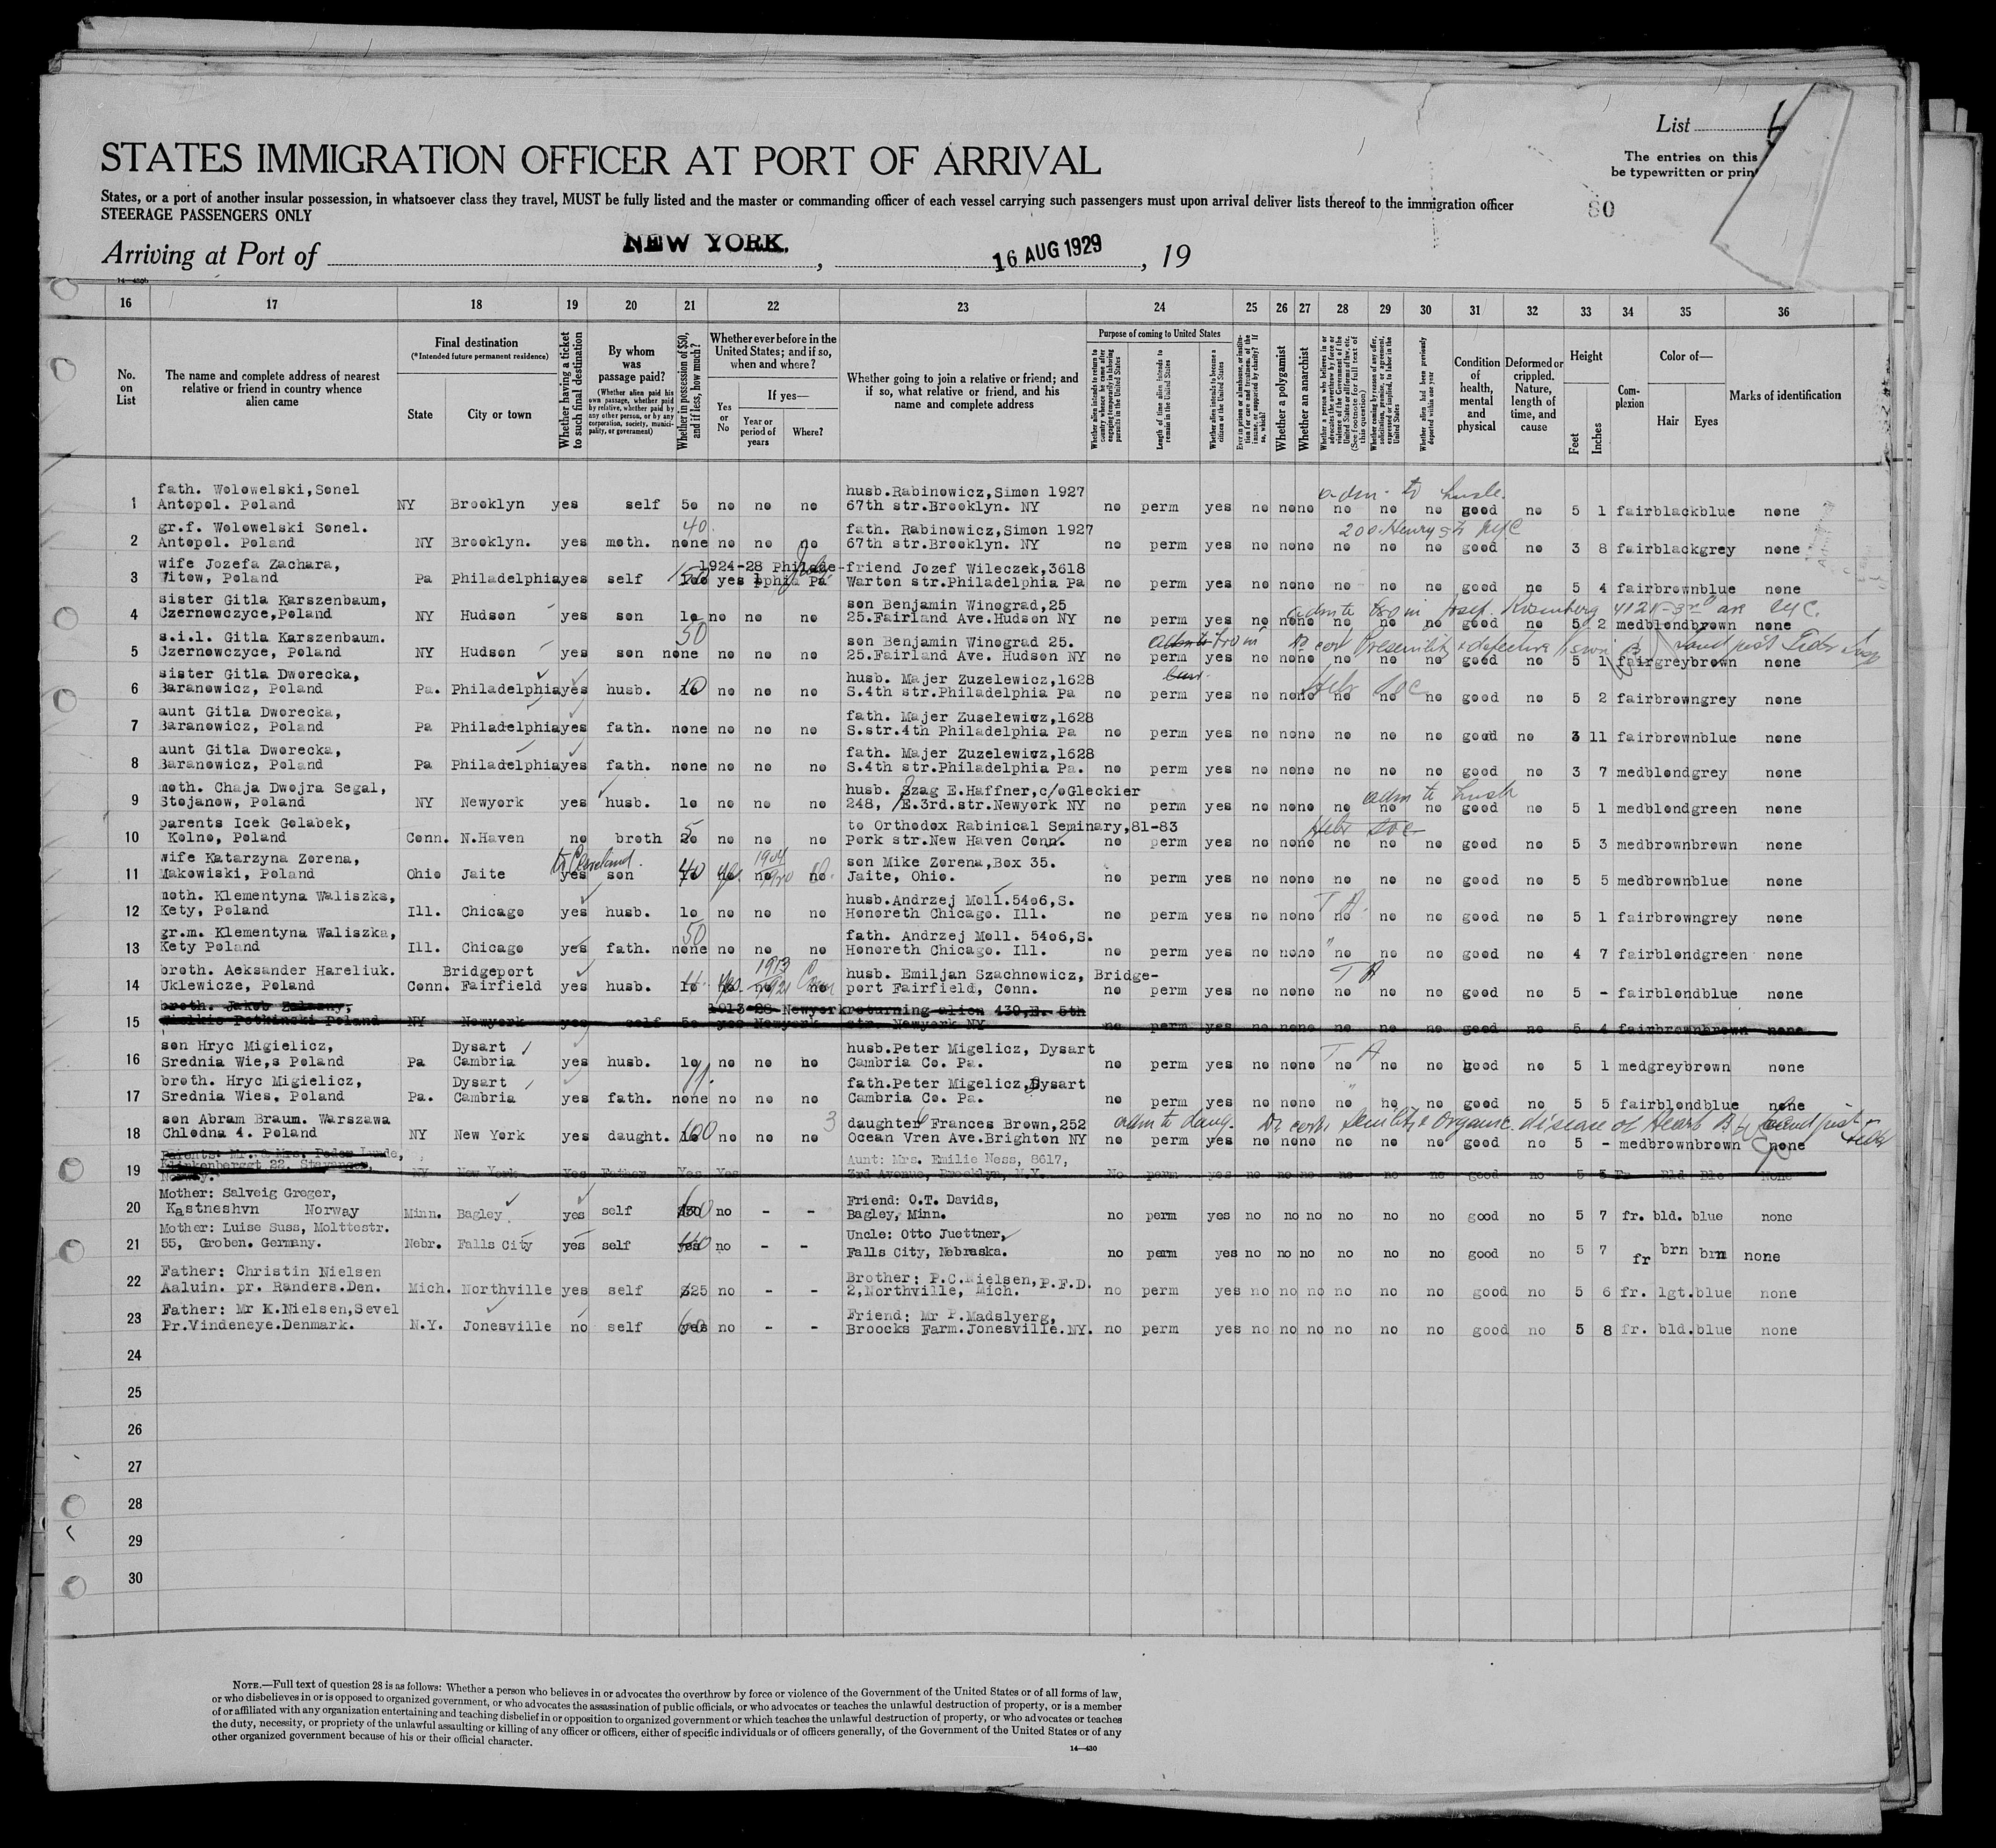 List
The entries on this
be typewritten or prin
80
STATES IMMIGRATION OFFICER AT PORT OF ARRIVAL
States, or a port of another insular possession, in whatsoever class they travel, MUST be fully listed and the master or commanding officer of each vessel carrying such passengers must upon arrival deliver lists thereof to the immigration officer
STEERAGE PASSENGERS ONLY
Arriving at Port of NEW YORK, , 16 AUG 1929 , 19
16 17 18 19 20 21 22 23 24 25 26 27 28 29 30 31 32 33 34 35 36
No. on List
The name and complete address of nearest relative or friend in country whence alien came
Final destination
(*Intended future permanent residence)
State City or town
Whether having a ticket to such final destination
By whom was passage paid?
(Whether alien paid his own passage, whether paid by relative, whether paid by any other person, or by any corporation, society, municipality, or government)
Whether in possession of $50, and if less, how much?
Whether ever before in the United States; and if so, when and where?
Yes or No
If yes—
Year or period of years
Where?
Whether going to join a relative or friend; and if so, what relative or friend, and his name and complete address
Purpose of coming to United States
Whether alien intends to return to country whence he came after engaging temporarily in laboring pursuits in the United States
Length of time alien intends to remain in the United States
Whether alien intends to become a citizen of the United States
Whether a polygamist
Whether an anarchist
Whether alien had been previously deported within one year
Condition of health, mental and physical
Deformed or crippled. Nature, length of time, and cause
Height
Feet Inches
Complexion
Color of—
Hair Eyes
Marks of identification
adm to husb.
1 father. Wolowelski,Sonel
Antopol. Poland NY Brooklyn yes self 50 no no no husb.Rabinowicz,Simon 1927
67th str.Brooklyn. NY no perm yes no no no no no no good no 5 1 fair black blue none
40
200 Henry st NYC
2 gr.f. Wolowelski Sonel.
Antopol. Poland NY Brooklyn. yes moth. none no no no fath. Rabinowicz,Simon 1927
67th str.Brooklyn. NY no perm yes no no no no no no good no 3 8 fair black grey none
3 wife Jozefa Zachara,
Witow, Poland Pa Philadelphia yes self yes 1924-28 Philade-
phia Pa friend Jozef Wileczek,3618
Warton str.Philadelphia Pa no perm yes no no no no no no good no 5 4 fair brown blue none
4 sister Gitla Karszenbaum,
Czernowczyce,Poland NY Hudson yes son 10 no no no son Benjamin Winograd,25
25.Fairland Ave.Hudson NY no perm yes no no no no no no good no 5 2 med blond brown none
50
5 s.i.l. Gitla Karszenbaum.
Czernowczyce, Poland NY Hudson yes son none no no no son Benjamin Winograd 25.
25.Fairland Ave. Hudson NY no perm yes no no no no no no good no 5 1 fair grey brown none
6 sister Gitla Dworecka,
Baranowicz, Poland Pa. Philadelphia yes husb. 10 no no no husb. Majer Zuzelewicz,1628
S.4th str.Philadelphia Pa no perm yes no no no no no no good no 5 2 fair brown grey none
7 aunt Gitla Dworecka,
Baranowicz, Poland Pa Philadelphia yes fath. none no no no fath. Majer Zuselewicz,1628
S.str.4th Philadelphia Pa no perm yes no no no no no no good no 3 11 fair brown blue none
8 aunt Gitla Dworecka,
Baranowicz, Poland Pa Philadelphia yes fath. none no no no fath. Majer Zuzelewicz,1628
S.4th str.Philadelphia Pa. no perm yes no no no no no no good no 3 7 med blond grey none
adm to husb
9 moth. Chaja Dwojra Segal,
Stojanow, Poland NY Newyork yes husb. 10 no no no husb. Szag E.Haffner,c/o Gleckier
248, E.3rd.str.Newyork NY no perm yes no no no no no no good no 5 1 med blond green none
10 parents Icek Golabek,
Kolno, Poland Conn. N.Haven no broth 20 no no no to Orthodox Rabinical Seminary,81-83
Pork str.New Haven Conn. no perm yes no no no no no no good no 5 3 med brown brown none
to Cleveland.
11 wife Katarzyna Zorena,
Makowiski, Poland Ohio Jaite yes son 40 no no no son Mike Zorena,Box 35.
Jaite, Ohio. no perm yes no no no no no no good no 5 5 med brown blue none
12 moth. Klementyna Waliszka,
Kety, Poland Ill. Chicago yes husb. 10 no no no husb.Andrzej Moll.5406,S.
Honoreth Chicago. Ill. no perm yes no no no no no no good no 5 1 fair brown grey none
50
13 gr.m. Klementyna Waliszka,
Kety Poland Ill. Chicago yes fath. none no no no fath. Andrzej Moll. 5406,S.
Honoreth Chicago. Ill. no perm yes no no no no no no good no 4 7 fair blond green none
14 broth. Aeksander Hareliuk.
Uklewicze, Poland Conn. Bridgeport
Fairfield yes husb. 10 no 1913 1921 Conn husb. Emiljan Szachnowicz, Bridge-
port Fairfield, Conn. no perm yes no no no no no no good no 5 - fair blond blue none
15 broth. Jakob
Poland NY Newyork yes self 50 yes 1913-28 Newyork returning alien 430,E. 5th
str. Newyork NY no perm yes no no no no no no good no 5 4 fair brown brown none
16 son Hryc Migielicz,
Srednia Wie,s Poland Pa Dysart
Cambria yes husb. 10 no no no husb.Peter Migelicz, Dysart
Cambria Co. Pa. no perm yes no no no no no no good no 5 1 med grey brown none
17 broth. Hryc Migielicz,
Srednia Wies, Poland Pa. Dysart
Cambria yes fath. none no no no fath.Peter Migelicz,Dysart
Cambria Co. Pa. no perm yes no no no no no no good no 5 5 fair blond blue none
adm to daug. Dr cert. Senility & Organic disease of Heart
18 son Abram Braum. Warszawa
Chlodna 4. Poland NY New York yes daught. 100 no no no daughter Frances Brown,252
Ocean Vren Ave.Brighton NY no perm yes no no no no no no good no 5 - med brown brown none
19 Parents: Mr. & Mrs. Peder Lunde,
22, Stavanger,
Norway. NY New York Yes Father Yes Yes Aunt: Mrs. Emilie Ness, 8617,
3rd Avenue, Brooklyn, N.Y. No perm yes no no no no no no good no 5 5 Fr Bld Ble None
20 Mother: Salveig Greger,
Kastneshvn Norway Minn. Bagley yes self no - - Friend: O.T. Davids,
Bagley, Minn. no perm yes no no no no no no good no 5 7 fr. bld. blue none
21 Mother: Luise Suss, Molttestr.
55, Groben. Germany. Nebr. Falls City yes self no - - Uncle: Otto Juettner,
Falls City, Nebraska. no perm yes no no no no no no good no 5 7 fr brn brn none
22 Father: Christin Nielsen
Aaluin. pr. Randers.Den. Mich. Northville yes self $25 no - - Brother: P.C.Nielsen,P.F.D.
2,Northville, Mich. no perm yes no no no no no no good no 5 6 fr. lgt. blue none
23 Father: Mr K.Nielsen,Sevel
Pr.Vindeneye.Denmark. N.Y. Jonesville no self yes no - - Friend: Mr P.Madslyerg,
Broocks Farm.Jonesville.NY. no perm yes no no no no no no good no 5 8 fr. bld. blue none
24
25
26
27
28
29
30
NOTE.—Full text of question 28 is as follows: Whether a person who believes in or advocates the overthrow by force or violence of the Government of the United States or of all forms of law,
or who disbelieves in or is opposed to organized government, or who advocates the assassination of public officials, or who advocates or teaches the unlawful destruction of property, or is a member
of or affiliated with any organization entertaining and teaching disbelief in or opposition to organized government or which teaches the unlawful destruction of property, or who advocates or teaches
the duty, necessity, or propriety of the unlawful assaulting or killing of any officer or officers, either of specific individuals or of officers generally, of the Government of the United States or of any
other organized government because of his or their official character.
14—430